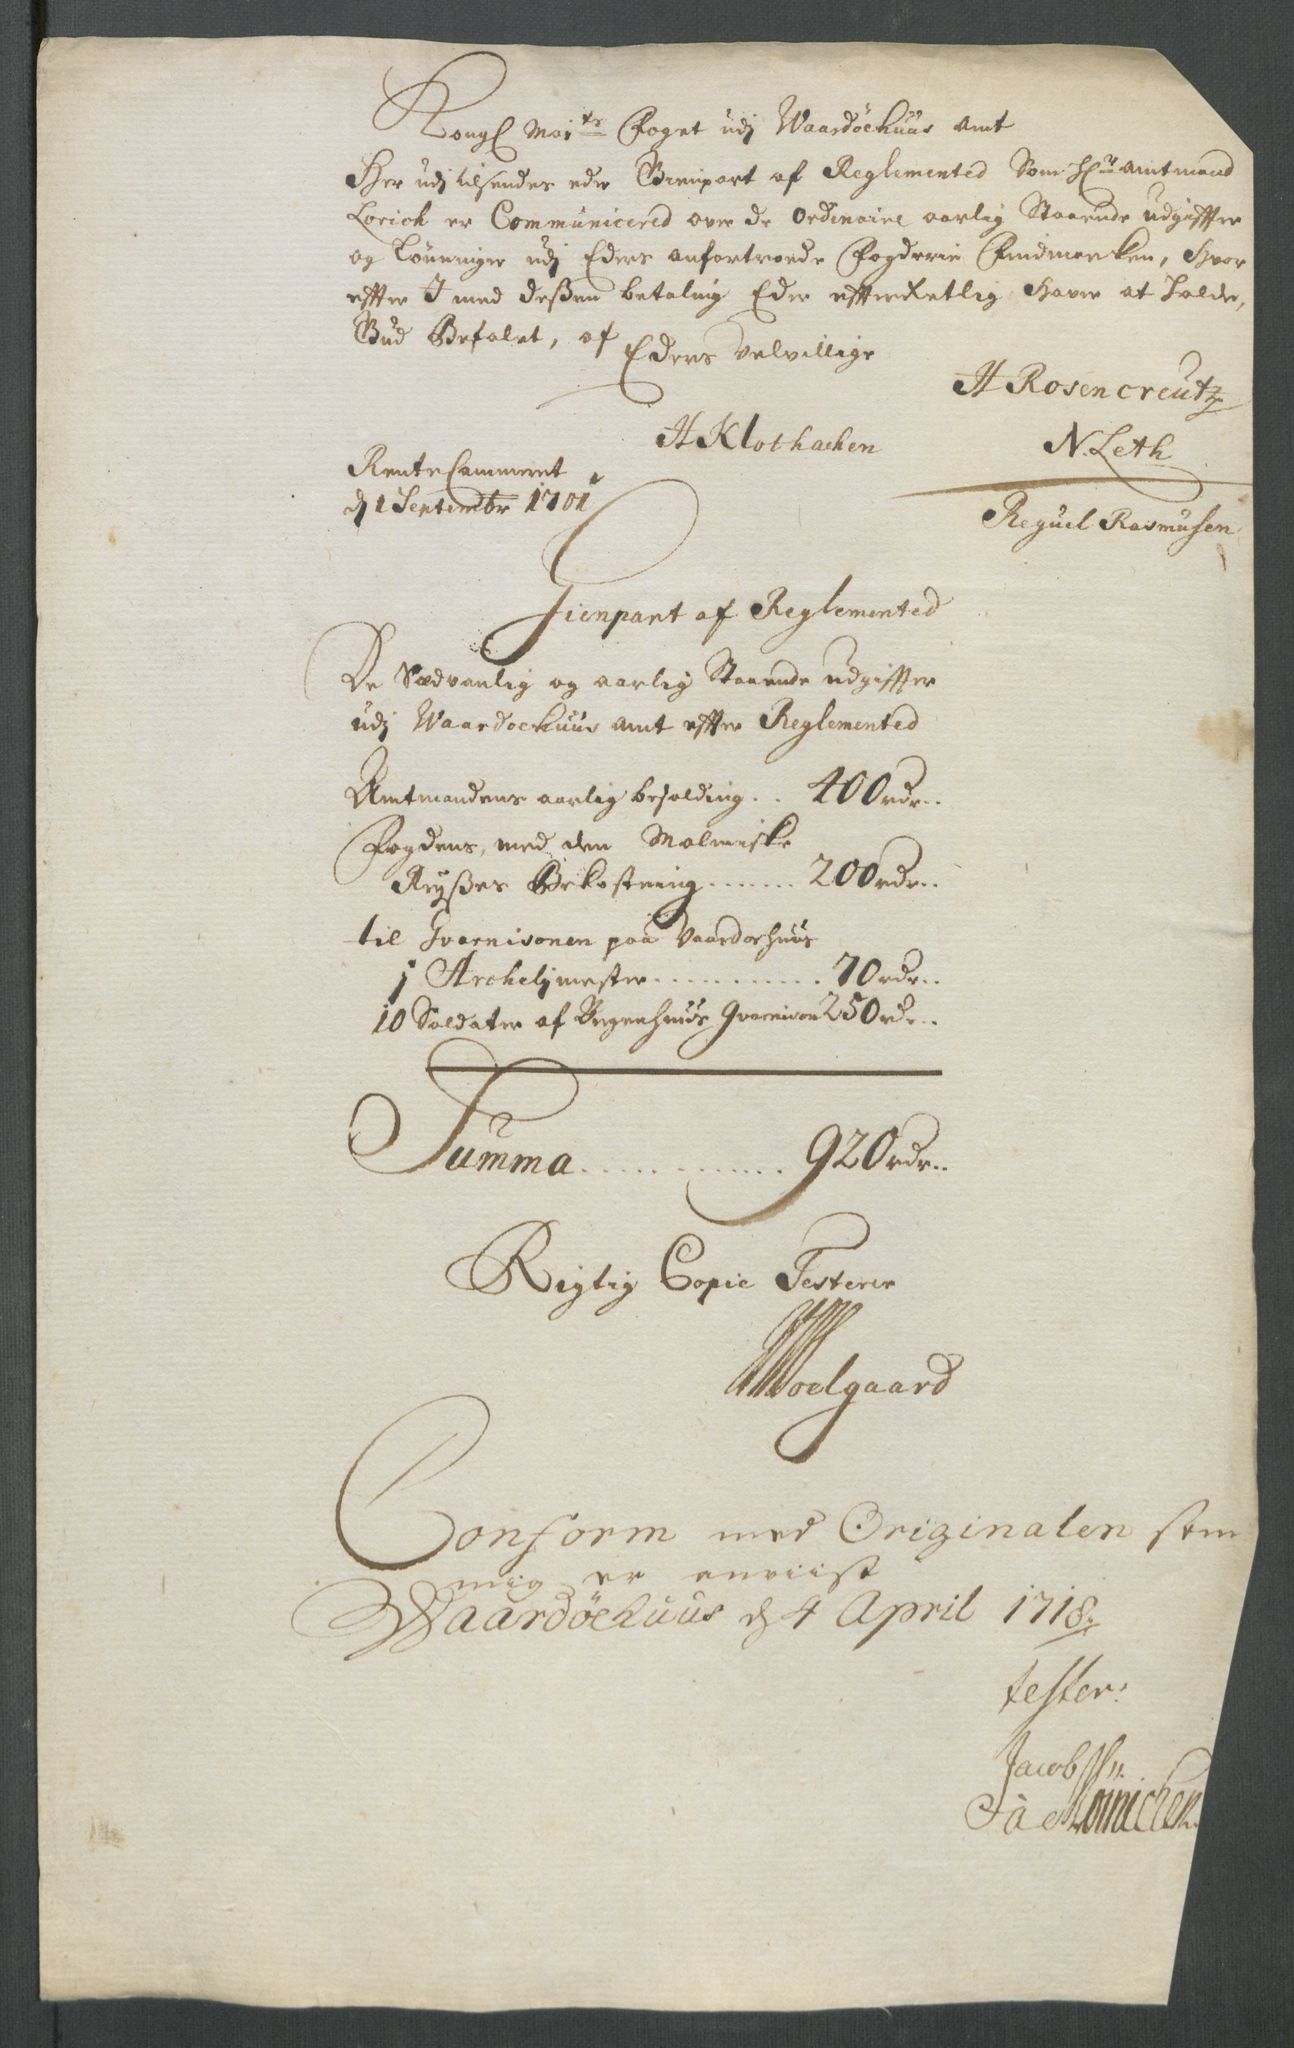 Kongl Mai^ts Foget udj Waardöehuus Amt
Her udj tilsendes eder Gienpart af Reglemented Som H^r Amtmand
Lorich er Communicered over de Ordinaire aarlig Staaende udgiffter
og Lönninger udj Eders anfortroede Fogderie Findmarken, Hvor
effter I med deßen betaling Eder effterRetlig haver at holde,
Gud Befalet, af
Eders velvillige
H Rosencreutz
H Klothacken
N. Leth
RenteCammeret
d 1 Septembr 1701
Reguel Rasmusen
Gienpart af Reglemented
De Sædvanlig og aarlig Staaende udgiffter
udj Waardoehuus Amt effter Reglemented
Amtmandens aarlig besolding.. 400 rdr..
Fogdens, med den Malmiske
Reyßes Bekostning....... 200 rdr..
til Gvarnisonen paa Vaardoehuus
1 Archelimester............ 70 rdr..
10 Soldater af Bergenhuus Gvarnison 250 rdr..
Summa............. 920 rdr..
Rigtig Copie Testerer
Moelgaard
Conform med Originalen som
mig er anviist
Waardöehuus d 4 April 1718
tester:
Jacob